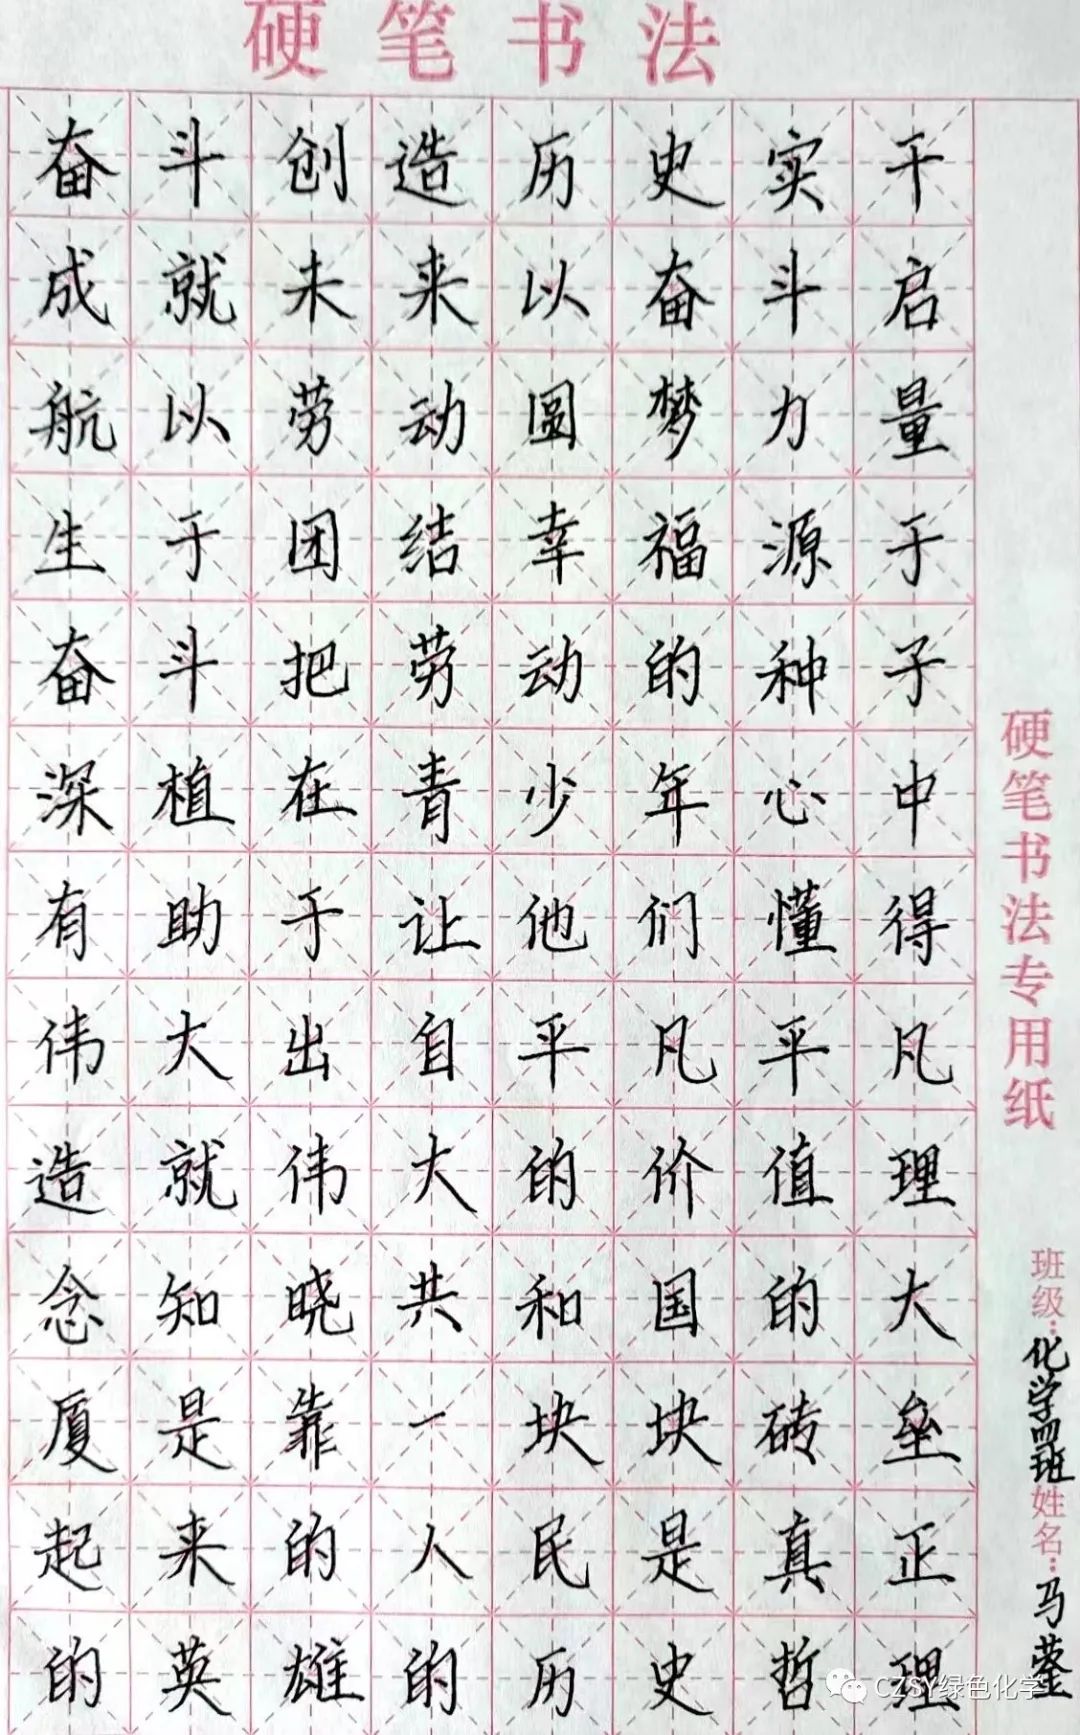 硬笔书法
奋斗创造历史实干
成就未来以奋斗启
航以劳动圆梦力量
生于团结幸福源于
奋斗把劳动的种子
深植在青少年心中
有助于让他们懂得
伟大出自平凡平凡
造就伟大的价值理
念知晓共和国的大
厦是靠一块块砖垒
起来的人民是真正
的英雄的历史哲理
硬笔书法专用纸
班级:化学四班姓名:马蓥
CZSY绿色化学